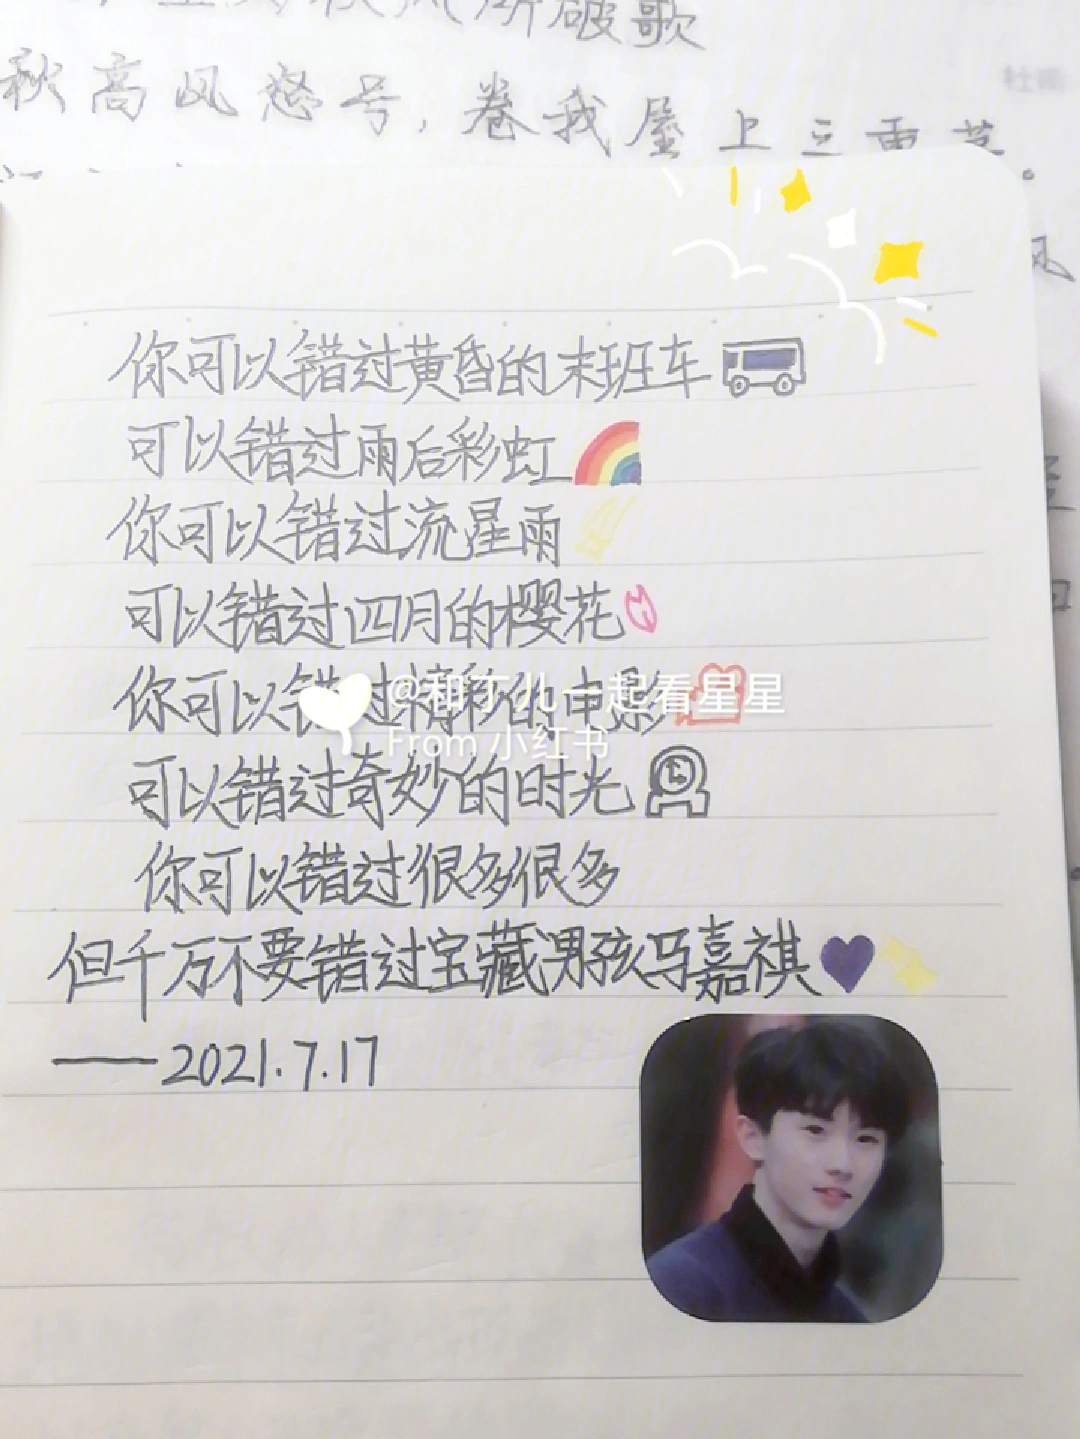 秋风所破歌
秋高风怒号，卷我屋上三重茅。
风
你可以错过黄昏的末班车
可以错过雨后彩虹
你可以错过流星雨
可以错过四月的樱花
你可以错过精彩的电影
@和丁儿一起看星星
From 小红书
可以错过奇妙的时光
你可以错过很多很多
但千万不要错过宝藏男孩马嘉祺
——2021.7.17